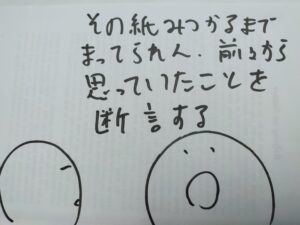 その紙みつかるまで
まってられん．前々から
思っていたことを
断言する